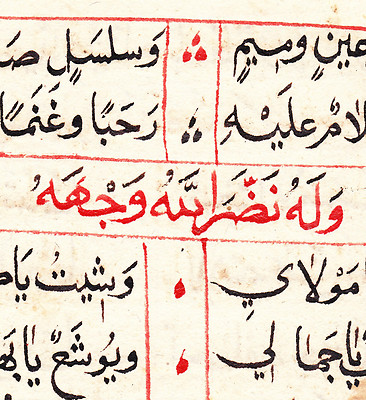 عينٍ وميمٍ وسلسلٍ
لامٌ عليهِ رَحَبًا وغَنَمًا
وَلَهُ نَضَّرَ اللهُ وَجْهَهُ
مَوْلَايِ وَشِيتُ
يا جمالي ويوشعٌ